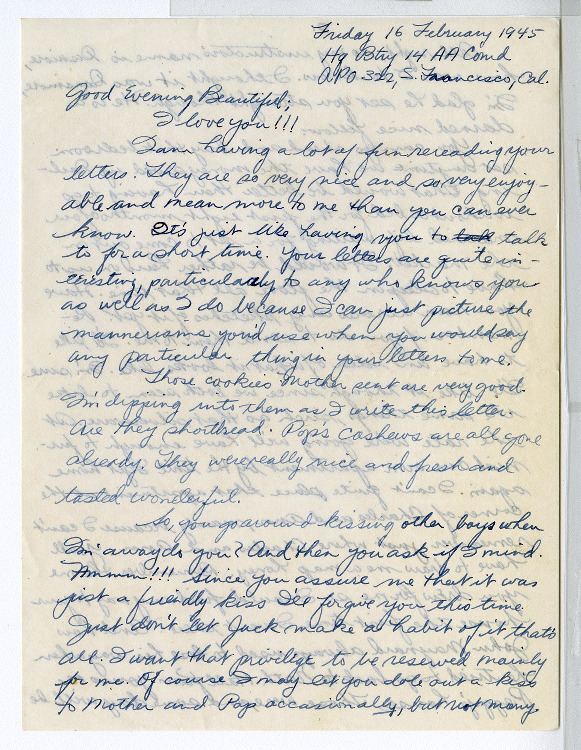 Friday 16 February 1945
Hq Btry 14 AA Comd
APO 322, S. Francisco, Cal.
Good Evening Beautiful;
I love you!!!
Dam having a lot of fun rereading your
letters. They are so very nice and so very enjoy-
able and mean more to me than you can ever
know. It's just like having you to talk talk
to for a short time. Your letters are quite in-
teresting, particularly to any who knows you
as well as I do because I can just picture the
mannerisms you'd use when you would say
any particular thing in your letters to me.
Those cookies Mother sent are very good.
I'm dipping into them as I write this letter.
Are they shortbread. Pop's cashews are all gone
already. They were really nice and fresh and
tasted wonderful.
So, you go around kissing other boys when
I'm away do you? And then you ask if I mind.
Hmmm!!! Since you assure me that it was
just a friendly kiss I'll forgive you this time.
Just don't let Jack make a habit of it that's
all. I want that privilige to be reserved mainly
for me. Of course I may let you dole out a kiss
to Mother and Pop occasionally, but not many